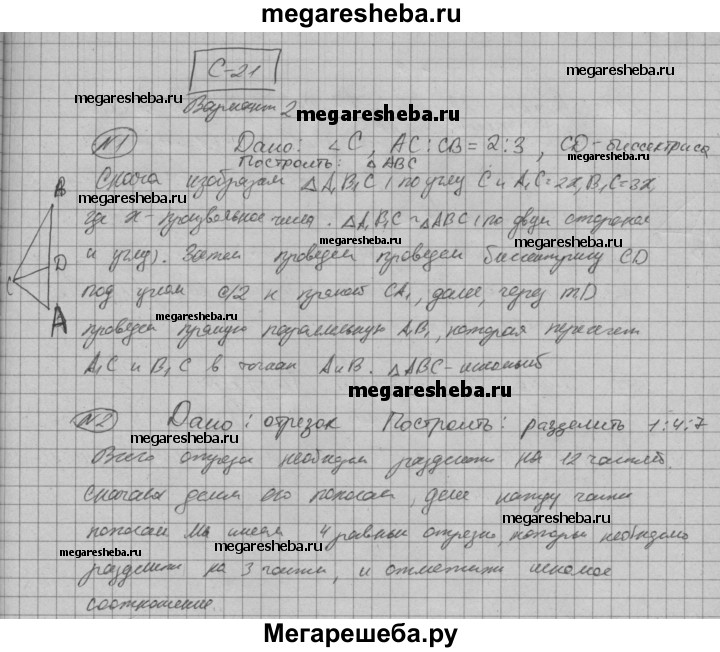 megaresheba.ru
С-21
megaresheba.ru
Вариант 2
megaresheba.ru
№1 Дано: ∠C, AC:CB=2:3, CD-биссектриса
megaresheba.ru Построить: △ABC megaresheba.ru
Сначала изобразим △A₁B₁C (по углу C и A₁C=2x, B₁C=3x,
B
megaresheba.ru
где x-произвольное число. △A₁B₁C~△ABC (по двум сторонам
megaresheba.ru
и углу). Затем проведем проведем биссектрису CD
D
C
megaresheba.ru
под углом C/2 к прямой CA₁, далее, через тD
megaresheba.ru
A
проведем прямую параллельную A₁B₁, которая пересечет
A₁C и B₁C в точках A и B. △ABC-искомый
megaresheba.ru
№2 Дано: отрезок Построить: разделить 1:4:7
megaresheba.ru
Всего отрезок необходимо разделить на 12 частей.
megaresheba.ru
Сначала делим его пополам, далее каждую часть
megaresheba.ru
пополам Мы имеем 4 равных отрезка, которые необходимо
megaresheba.ru megaresheba.ru
разделить на 3 части, и отметить искомое
megaresheba.ru
соотношение.
Мегарешеба.ру